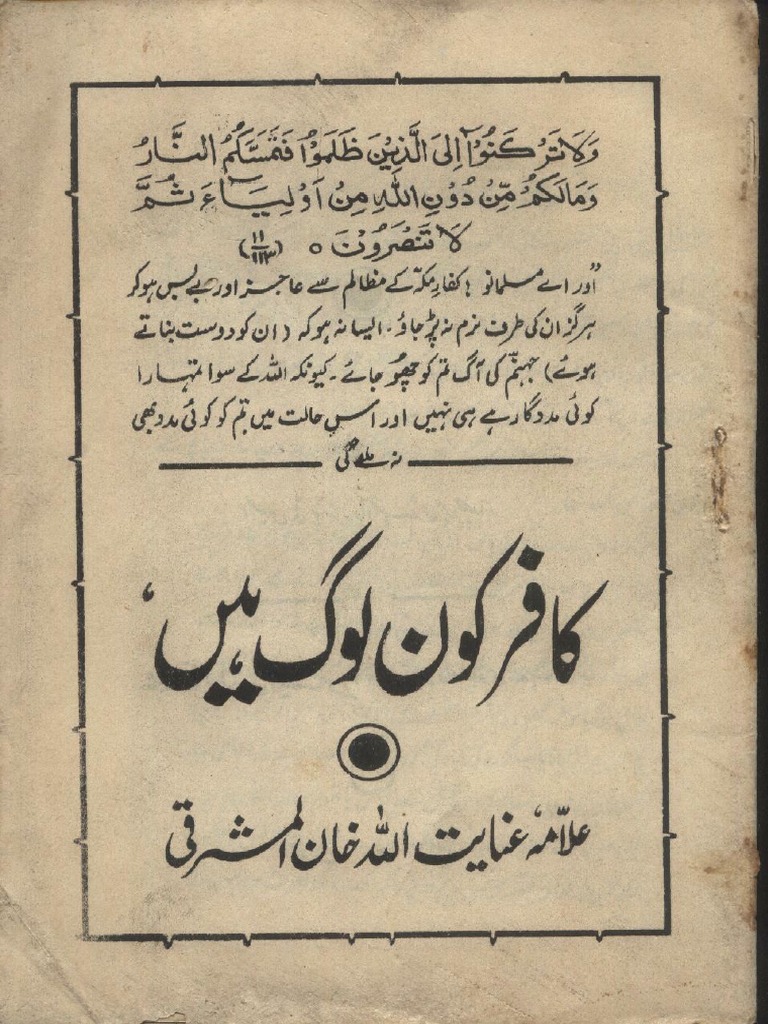 وَلَا تَرْكَنُوْۤا اِلَى الَّذِيْنَ ظَلَمُوْا فَتَمَسَّكُمُ النَّارُ
وَمَا لَكُمْ مِّنْ دُوْنِ اللّٰهِ مِنْ اَوْلِيَآءَ ثُمَّ
لَا تُنْصَرُوْنَ ○ (۱۱/۱۱۳)
"اور اے مسلمانو! کفارِ مکہ کے مظالم سے عاجز اور بے بس ہو کر
ہرگز ان کی طرف نرم نہ پڑ جاؤ۔ ایسا نہ ہو کہ (ان کو دوست بناتے
ہوئے) جہنّم کی آگ تم کو چھُو جائے۔ کیونکہ اللہ کے سوا تمہارا
کوئی مددگار ہے ہی نہیں اور اس حالت میں تم کو کوئی مدد بھی
نہ ملے گی
کافر کون لوگ ہیں،
علّامہ عنایت اللہ خان المشرقی